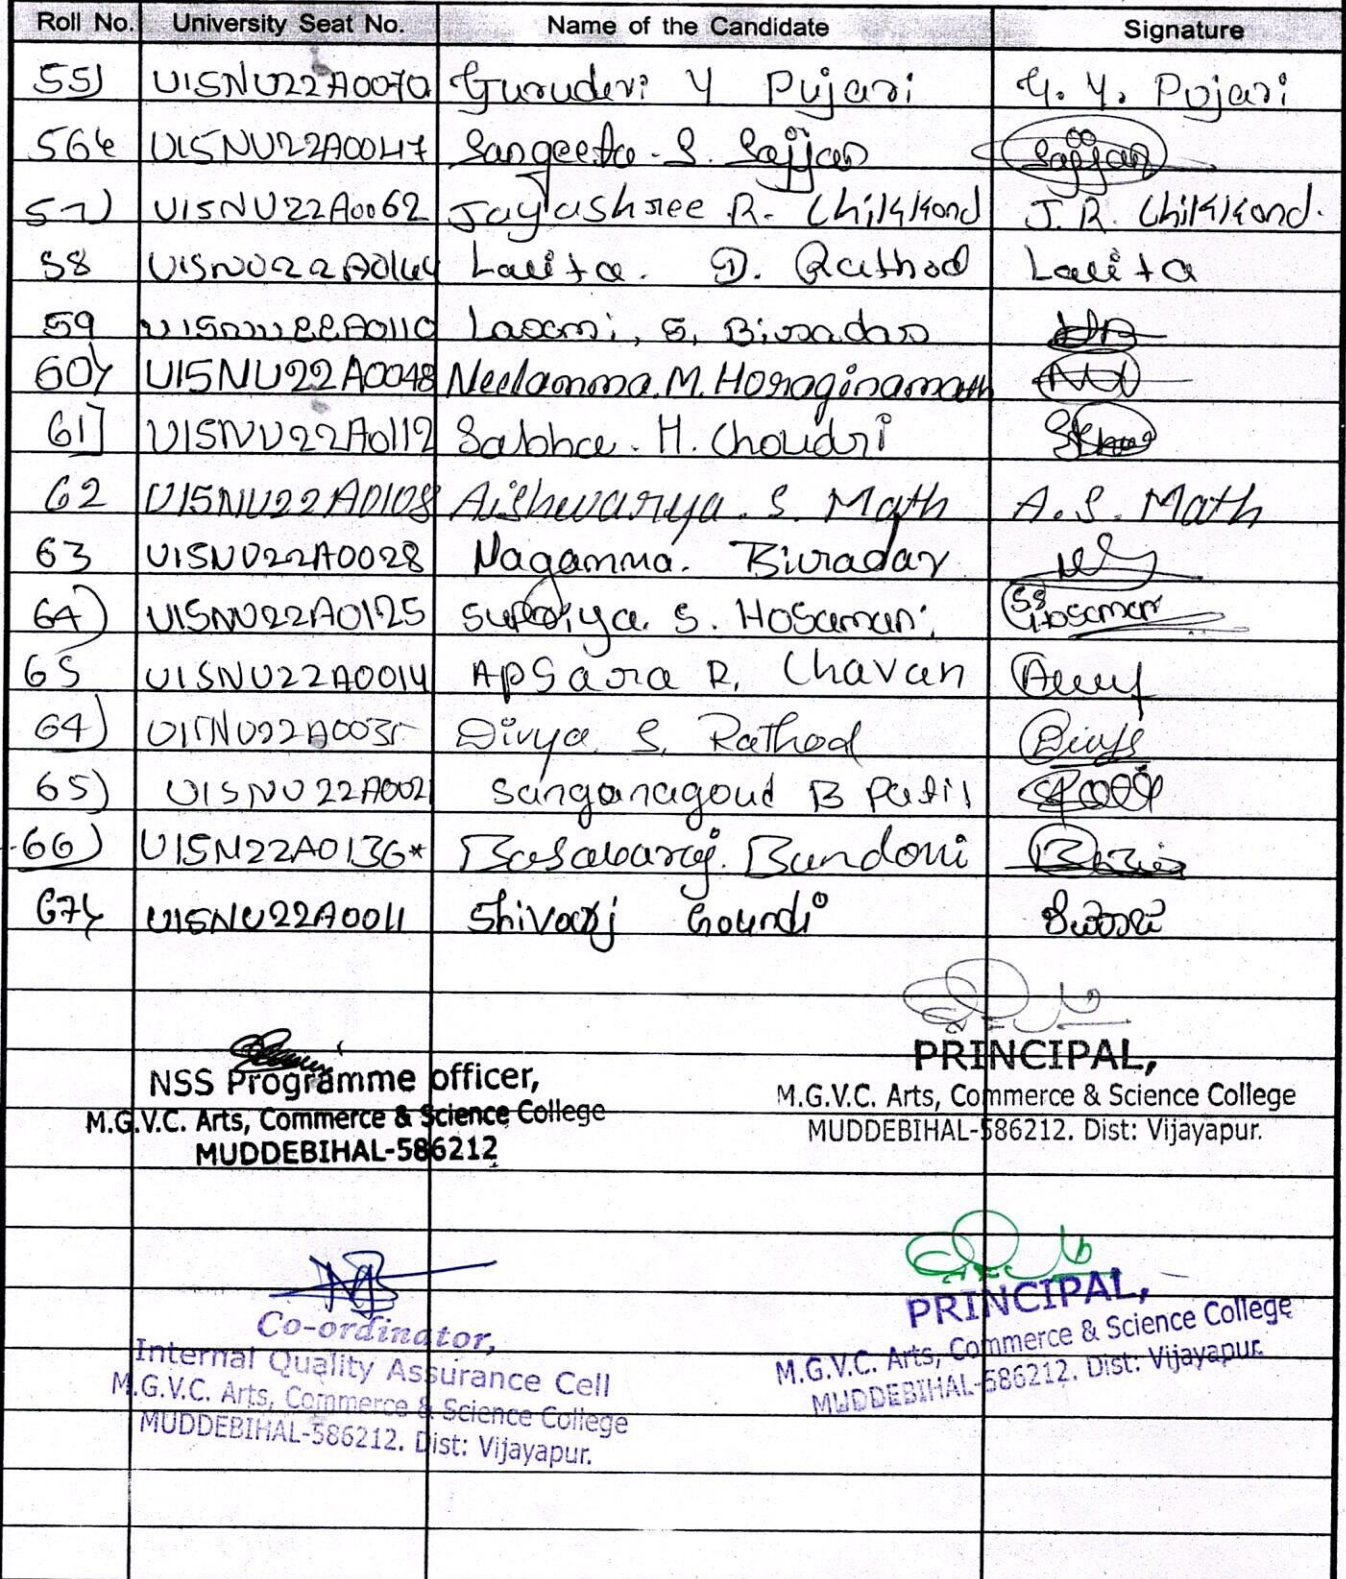 Roll No. University Seat No. Name of the Candidate Signature
55) U15NU22A0070 Gurudevi Y Pujari G. Y. Pojari
56 U15NU22A0047 Sangeeta. S. Sajjan Sajjan
57) U15NU22A0062 Jaylashree R. Chikkond J. R. Chikkond.
58 U15NU22A0144 Lalita. D. Rathod Lalita
59 U15NU22A0110 Laxmi, S, Biradar
60) U15NU22A0048 Neelamma.M.Horaginamath
61] U15NU22A0112 Sabha. H. Choudri
62 U15NU22A0108 Aishwarya. S. Math A. S. Math
63 U15NU22A0028 Nagamma. Biradar
64) U15NU22A0125 S. Hosamani SS Hosamani
65 U15NU22A0014 Apsara R, Chavan
64) U15NU22A0035 Divya S, Rathod
65) U15NU22A0021 Sanganagoud B Patil
66) U15N22A0136* Basavaraj. Bandoni
67) U15NU22A0011 Shivaraj Goundi
NSS Programme officer,
M.G.V.C. Arts, Commerce & Science College
MUDDEBIHAL-586212
PRINCIPAL,
M.G.V.C. Arts, Commerce & Science College
MUDDEBIHAL-586212. Dist: Vijayapur.
Co-ordinator,
Internal Quality Assurance Cell
M.G.V.C. Arts, Commerce & Science College
MUDDEBIHAL-586212. Dist: Vijayapur.
PRINCIPAL,
M.G.V.C. Arts, Commerce & Science College
MUDDEBIHAL-586212. Dist: Vijayapur.